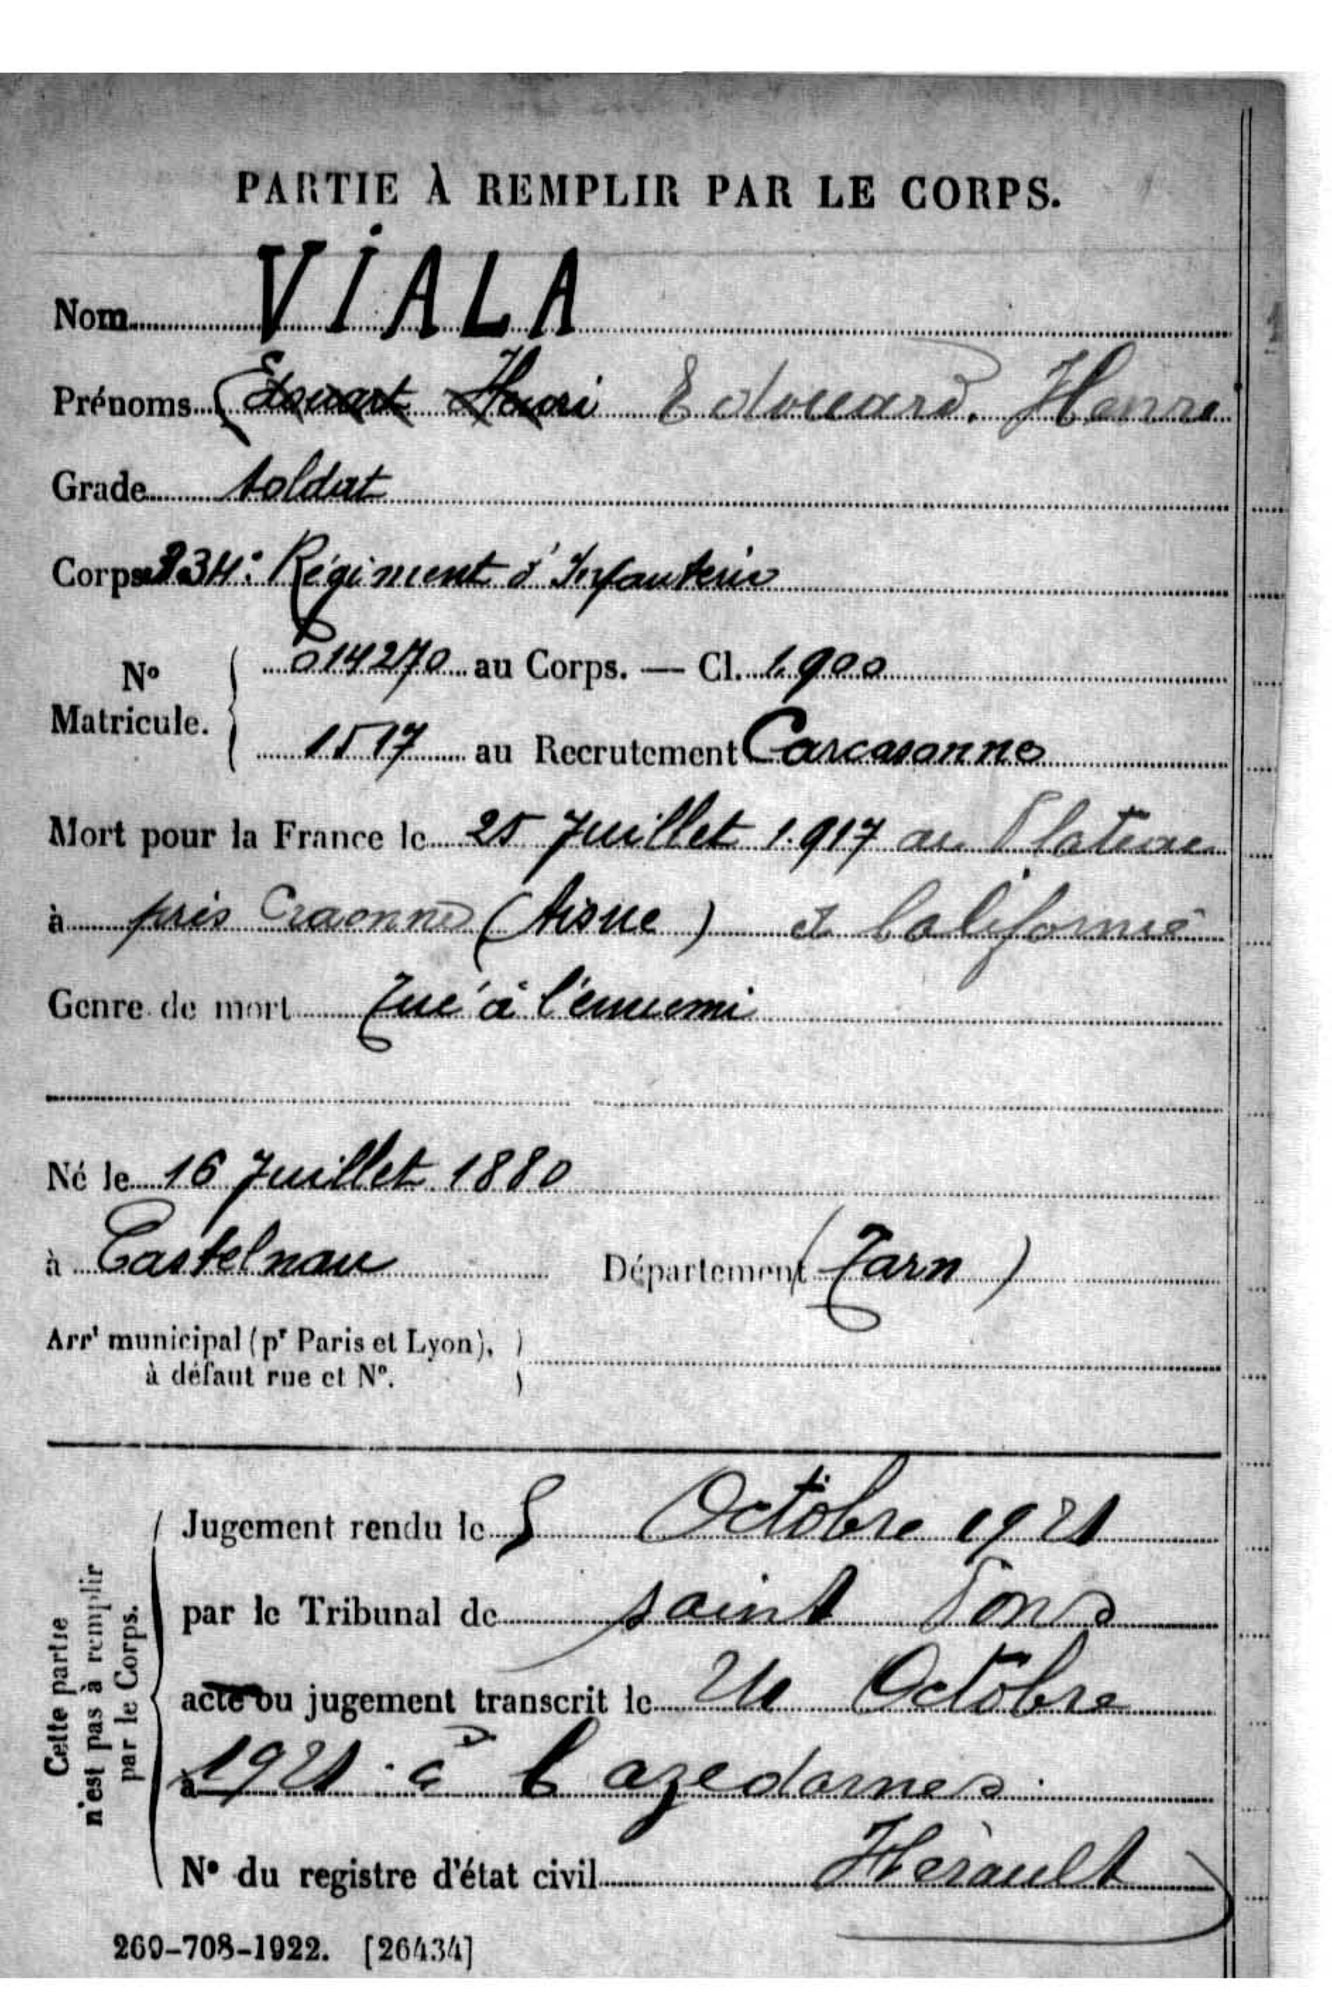 PARTIE À REMPLIR PAR LE CORPS.
Nom VIALA
Prénoms Edouard Henri
Grade soldat
Corps 334e Régiment d'Infanterie
No Matricule. 014270 au Corps. — Cl. 1.900
1517 au Recrutement Carcasonne
Mort pour la France le 25 Juillet 1.917 au Plateau
à près Craonne (Aisne) de Californie
Genre de mort Tué à l'ennemi
Né le 16 Juillet 1880
à Castelnau Département (Tarn)
Arrt municipal (pr Paris et Lyon),
à défaut rue et N°.
Cette partie
n'est pas à remplir
par le Corps.
Jugement rendu le 5 Octobre 1921
par le Tribunal de saint Pons
acte ou jugement transcrit le Octobre
à 1921 à Cazedarnes.
N° du registre d'état civil Hérault
260-708-1922. [26434]